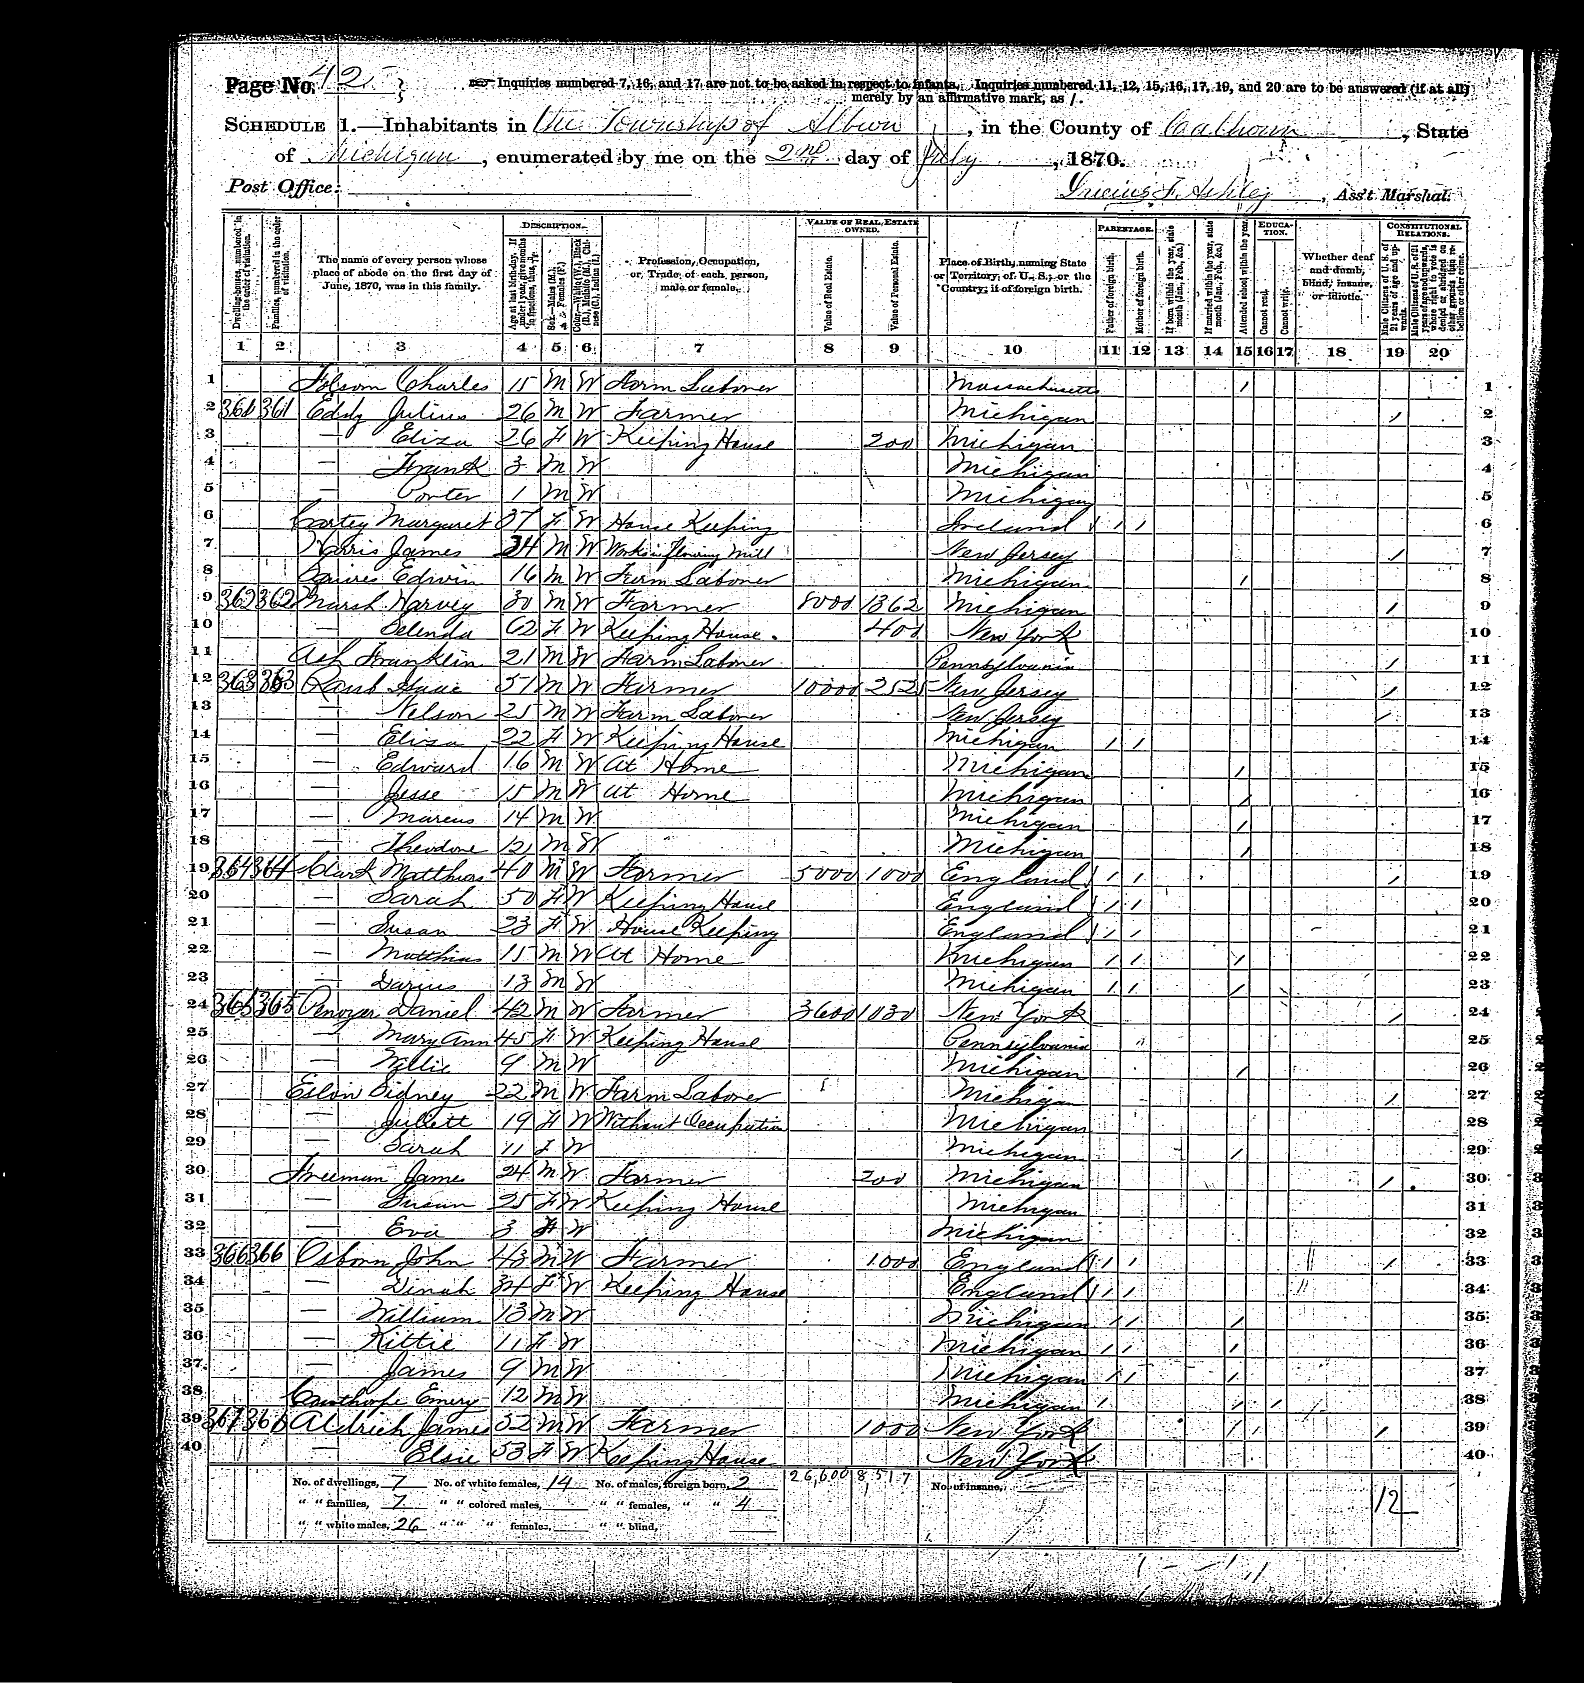 Page No. 42
Inquiries numbered 7, 16, and 17 are not to be asked in respect to infants. Inquiries numbered 11, 12, 15, 16, 17, 19, and 20 are to be answered (if at all)
merely by an affirmative mark, as /.
SCHEDULE 1.—Inhabitants in the Township of Albion, in the County of Calhoun, State
of Michigan, enumerated by me on the 2nd day of July, 1870.
Post Office:
Lucius F. Ashley, Ass't Marshal.
DESCRIPTION. VALUE OF REAL ESTATE OWNED. PARENTAGE. EDUCATION. CONSTITUTIONAL RELATIONS.
Dwelling-houses, numbered in the order of visitation. Families, numbered in the order of visitation. The name of every person whose place of abode on the first day of June, 1870, was in this family. Profession, Occupation, or Trade of each person, male or female. Value of Real Estate. Value of Personal Estate. Place of Birth, naming State or Territory of U. S.; or the Country, if of foreign birth. Father of foreign birth. Mother of foreign birth. Attended school within the year. Cannot read. Cannot write. Whether deaf and dumb, blind, insane, or idiotic.
1 2 3 4 5 6 7 8 9 10 11 12 13 14 15 16 17 18 19 20
1 Folsom Charles 15 M W Farm Laborer Massachusetts / 1
2 361 361 Eddy Julius 26 M W Farmer Michigan / 2
3 — Eliza 26 F W Keeping House 200 Michigan 3
4 — Frank 3 M W Michigan 4
5 — Porter 1 M W Michigan 5
6 Margaret 37 F W House Keeping Ireland / / 6
7 Harris James 34 M W Works in Flouring Mill New Jersey / 7
8 Squires Edwin 16 M W Farm Laborer Michigan / 8
9 362 362 Marsh Harvey 30 M W Farmer 8000 1362 Michigan / 9
10 — Delenda 62 F W Keeping House 400 New York 10
11 Ash Franklin 21 M W Farm Laborer Pennsylvania / 11
12 363 363 Isaac 51 M W Farmer 10000 2525 New Jersey / 12
13 — Nelson 25 M W Farm Laborer New Jersey / 13
14 — Eliza 22 F W Keeping House Michigan / / 14
15 — Edward 16 M W At Home Michigan / 15
16 — Jesse 15 M W At Home Michigan / 16
17 — Marcus 14 M W Michigan / 17
18 — Theodore 12 M W Michigan / 18
19 364 364 Clark Matthias 40 M W Farmer 5000 1000 England / / / 19
20 — Sarah 50 F W Keeping House England / / 20
21 — Susan 23 F W House Keeping England / / 21
22 — Matthias 15 M W At Home Michigan / / / 22
23 — Darius 13 M W Michigan / / / 23
24 365 365 Penoyar Daniel 42 M W Farmer 3600 1030 New York / 24
25 — Mary Ann 45 F W Keeping House Pennsylvania 25
26 — Willie 9 M W Michigan / 26
27 Eslow Sidney 22 M W Farm Laborer Michigan / 27
28 — Juliett 19 F W Without Occupation Michigan 28
29 — Sarah 11 F W Michigan / 29
30 Freeman James 24 M W Farmer 200 Michigan / 30
31 — Susan 25 F W Keeping House Michigan 31
32 — Eva 3 F W Michigan 32
33 366 366 Osborn John 43 M W Farmer 1000 England / / / 33
34 — Dinah 34 F W Keeping House England / / 34
35 — William 13 M W Michigan / / / 35
36 — Kittie 11 F W Michigan / / / 36
37 — James 9 M W Michigan / / / 37
38 Emery 12 M W Michigan / / / 38
39 367 366 Aldrich James 52 M W Farmer 1000 New York / / / 39
40 — Elsie 53 F W Keeping House New York 40
No. of dwellings, 7 No. of white females, 14 No. of males, foreign born, 2 26,600 8517 No. of insane,
" " families, 7 " " colored males, " " females, " " 4 12
" " white males, 26 " " " females, " " blind,